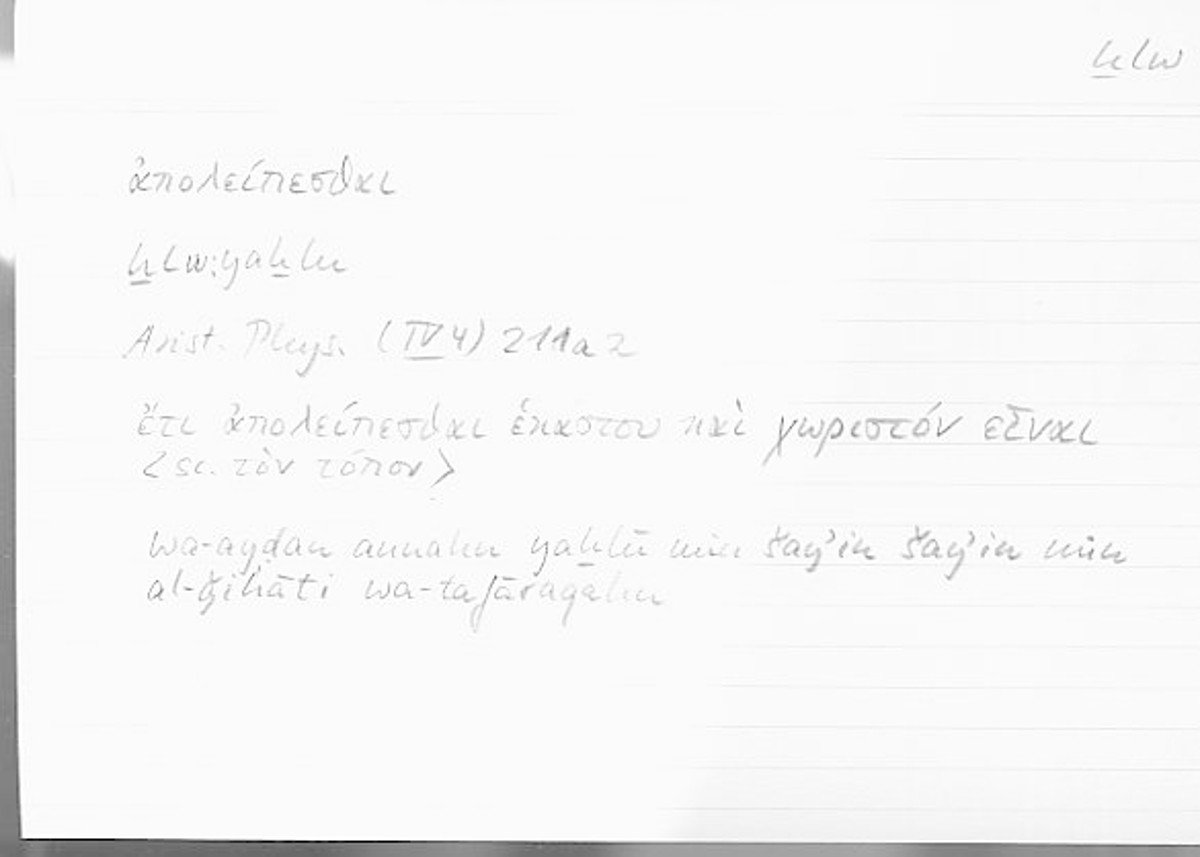 ḫlw
ἀπολείπεσθαι
ḫlw: yaḫlu
Arist. Phys. (IV 4) 211a2
ἔτι ἀπολείπεσθαι ἑκάστου καὶ χωριστόν εἶναι
<sc. τὸν τόπον>
wa-ayḍan annahu yaḫlū min šayʾin šayʾin min
al-ǧihāti wa-tafāraqahu